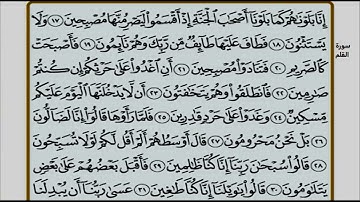 سورة
القلم
إِنَّا بَلَوْنَاهُمْ كَمَا بَلَوْنَا أَصْحَابَ الْجَنَّةِ إِذْ أَقْسَمُوا لَيَصْرِمُنَّهَا مُصْبِحِينَ ١٧ وَلَا
يَسْتَثْنُونَ ١٨ فَطَافَ عَلَيْهَا طَائِفٌ مِّن رَّبِّكَ وَهُمْ نَائِمُونَ ١٩ فَأَصْبَحَتْ
كَالصَّرِيمِ ٢٠ فَتَنَادَوْا مُصْبِحِينَ ٢١ أَنِ اغْدُوا عَلَىٰ حَرْثِكُمْ إِن كُنتُمْ
صَارِمِينَ ٢٢ فَانطَلَقُوا وَهُمْ يَتَخَافَتُونَ ٢٣ أَن لَّا يَدْخُلَنَّهَا الْيَوْمَ عَلَيْكُم
مِّسْكِينٌ ٢٤ وَغَدَوْا عَلَىٰ حَرْدٍ قَادِرِينَ ٢٥ فَلَمَّا رَأَوْهَا قَالُوا إِنَّا لَضَالُّونَ
٢٦ بَلْ نَحْنُ مَحْرُومُونَ ٢٧ قَالَ أَوْسَطُهُمْ أَلَمْ أَقُل لَّكُمْ لَوْلَا تُسَبِّحُونَ
٢٨ قَالُوا سُبْحَانَ رَبِّنَا إِنَّا كُنَّا ظَالِمِينَ ٢٩ فَأَقْبَلَ بَعْضُهُمْ عَلَىٰ بَعْضٍ
يَتَلَاوَمُونَ ٣٠ قَالُوا يَا وَيْلَنَا إِنَّا كُنَّا طَاغِينَ ٣١ عَسَىٰ رَبُّنَا أَن يُبْدِلَنَا